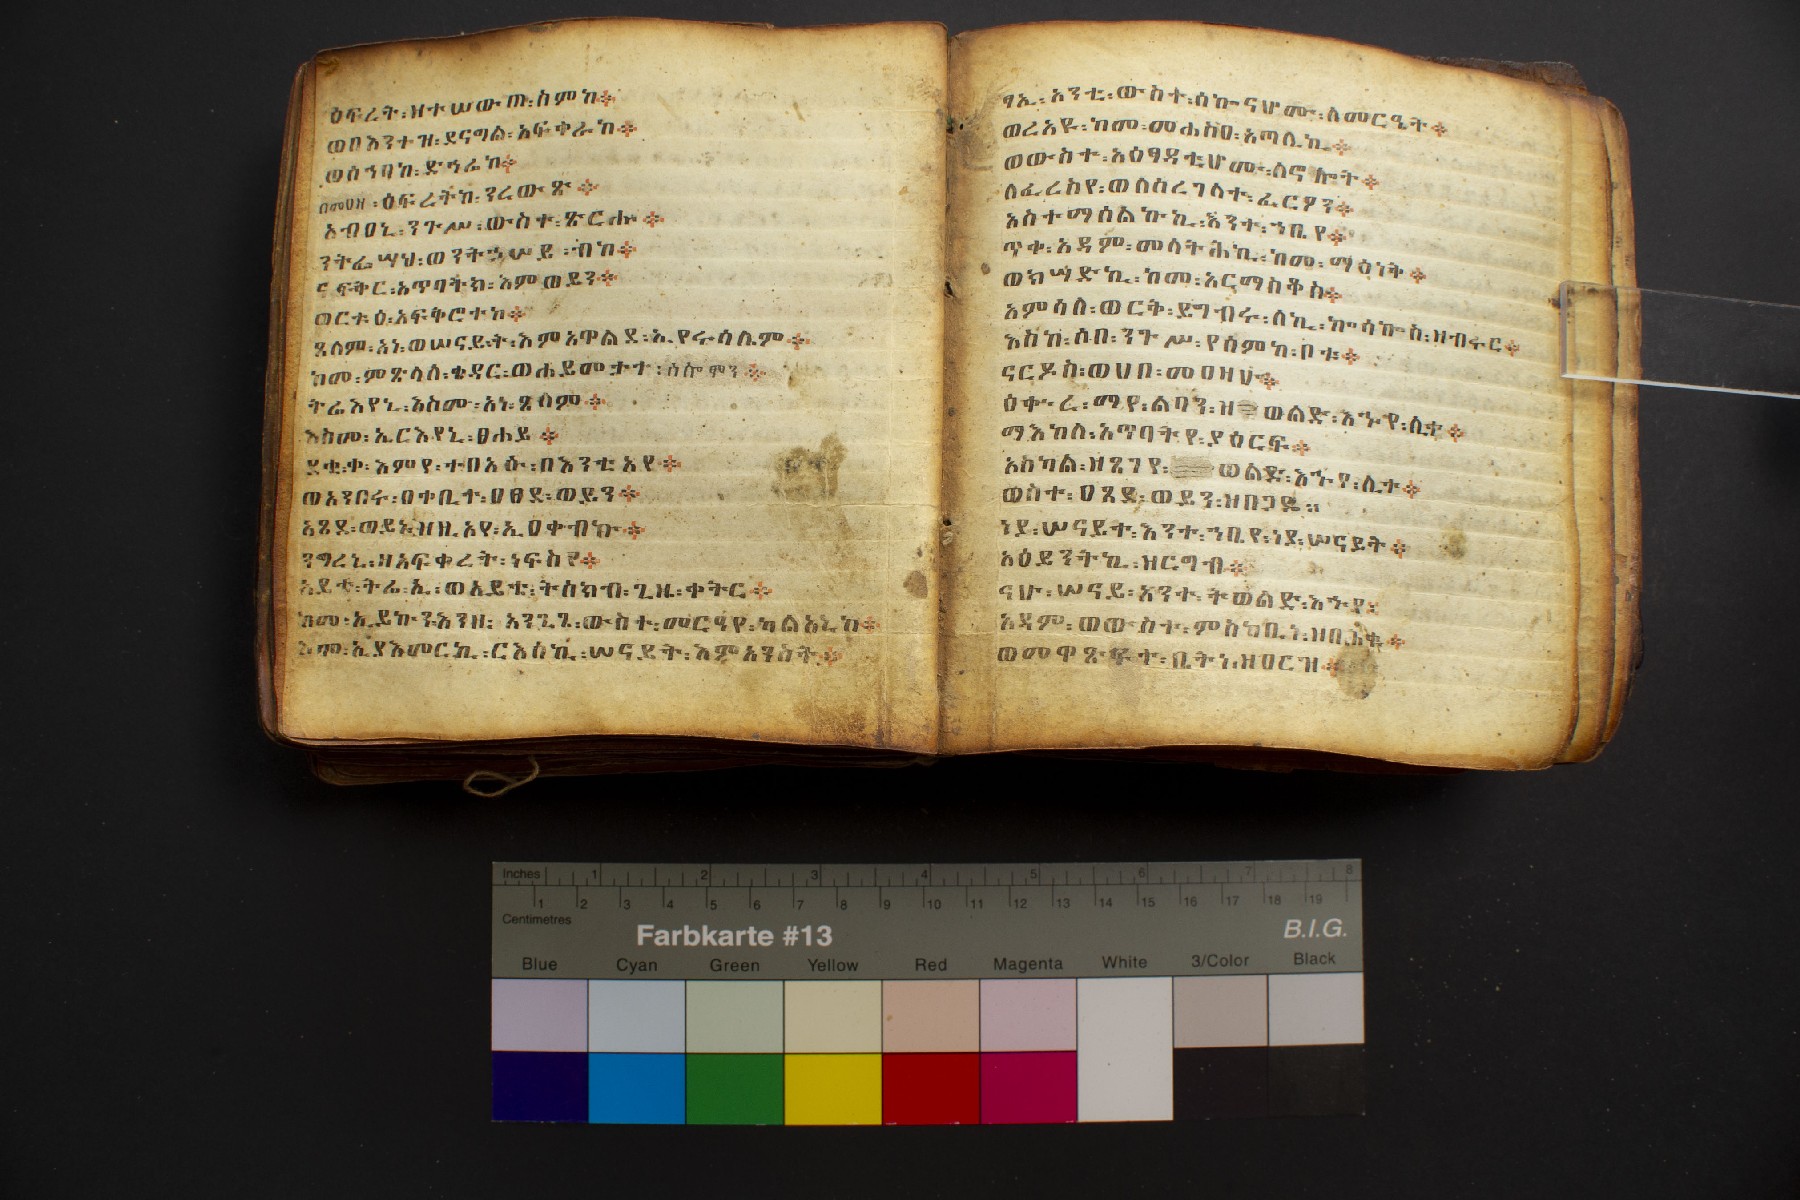 ዕፍረት፡ዘተሠውጠ፡ስምከ፨
ወበእንተዝ፡ደናግል፡አፍቀራከ፨
ወሰሓባከ፡ድኅሬከ፨
በመዐዛ፡ዕፍረትከ፡ንረውጽ፨
አብዐኒ፡ንጉሥ፡ውስተ፡ጽርሑ፨
ንትፌሣህ፡ወንትኃሠይ፡ብከ፨
ናፍቅር፡አጥባትኪ፡እምወይን፨
ወርቱዕ፡አፍቅሮተከ፨
ጸላም፡አነ፡ወሠናይት፡እምአዋልደ፡ኢየሩሳሌም፨
ከመ፡ምጽላሰ፡ቄዳር፡ወሐይመታተ፡ሰሎሞን፨
ትሬእየኒ፡እስመ፡አነ፡ጸላም፨
እስመ፡ኢርእየኒ፡ፀሐይ፨
ደቂቀ፡እምየ፡ተበአሱ፡በእንቲአየ፨
ወአንበሩ፡ዐቀቢተ፡ዐፀደ፡ወይን፨
አጸደ፡ወይኑ፡ዘዚአየ፡ኢዐቀብኩ፨
ንግረኒ፡ዘአፍቀረት፡ነፍስየ፨
አይቴ፡ትሬኢ፡ወአይቴ፡ትሰክብ፡ጊዜ፡ቀትር፨
ከመ፡ኢይኩን፡እንዘ፡አንጌጊ፡ውስተ፡መርዔየ፡ካልኣኒከ፨
እመ፡ኢያእመርኪ፡ርእሰኪ፡ሠናይት፡እምአንስት፨
ፃኢ፡አንቲ፡ውስተ፡ሰኰናሆሙ፡ለመርዔት፨
ወረአዪ፡ከመ፡መሐስዐ፡አጣሊኪ፨
ወውስተ፡አዕፃዳቲሆሙ፡ለኖሎት፨
ለፈረስየ፡ወለሰረገላተ፡ፈርዖን፨
አስተማሰልኩኪ፡እንተ፡ኀቤየ፨
ጥቀ፡አዳም፡መላትሕኪ፡ከመ፡ማዕነቅ፨
ወክሣድኪ፡ከመ፡አርማስቆስ፨
አምሳለ፡ወርቅ፡ይግብሩ፡ለኪ፡ኰሳኵሰ፡ዘብሩር፨
እስከ፡ሶበ፡ንጉሥ፡የሰምክ፡ቦቱ፨
ናርዶስ፡ወሀበ፡መዐዛሁ፨
ዕቍረ፡ማየ፡ልባን፡ዘወልድ፡እኁየ፡ሊተ፨
ማእከለ፡አጥባትየ፡ያዕርፍ፨
አስካል፡ዘጸገየ፡ወልድ፡እኁየ፡ሊተ፨
ወስተ፡ዐጸደ፡ወይን፡ዘበጋዲ።
ነያ፡ሠናይት፡እንተ፡ኀቤየ፡ነያ፡ሠናይት፨
አዕይንትኪ፡ዘርግብ፨
ናሁ፡ሠናይ፡አንተ፡ትወልድ፡እኁየ፨
አዳም፡ወውስተ፡ምስካቢነ፡ዘበሕቁ፨
ወመዋጽፍተ፡ቤትነ፡ዘዐርዝ፨
Inches 1 2 3 4 5 6 7 8
1 2 3 4 5 6 7 8 9 10 11 12 13 14 15 16 17 18 19
Centimetres
Farbkarte #13 B.I.G.
Blue Cyan Green Yellow Red Magenta White 3/Color Black